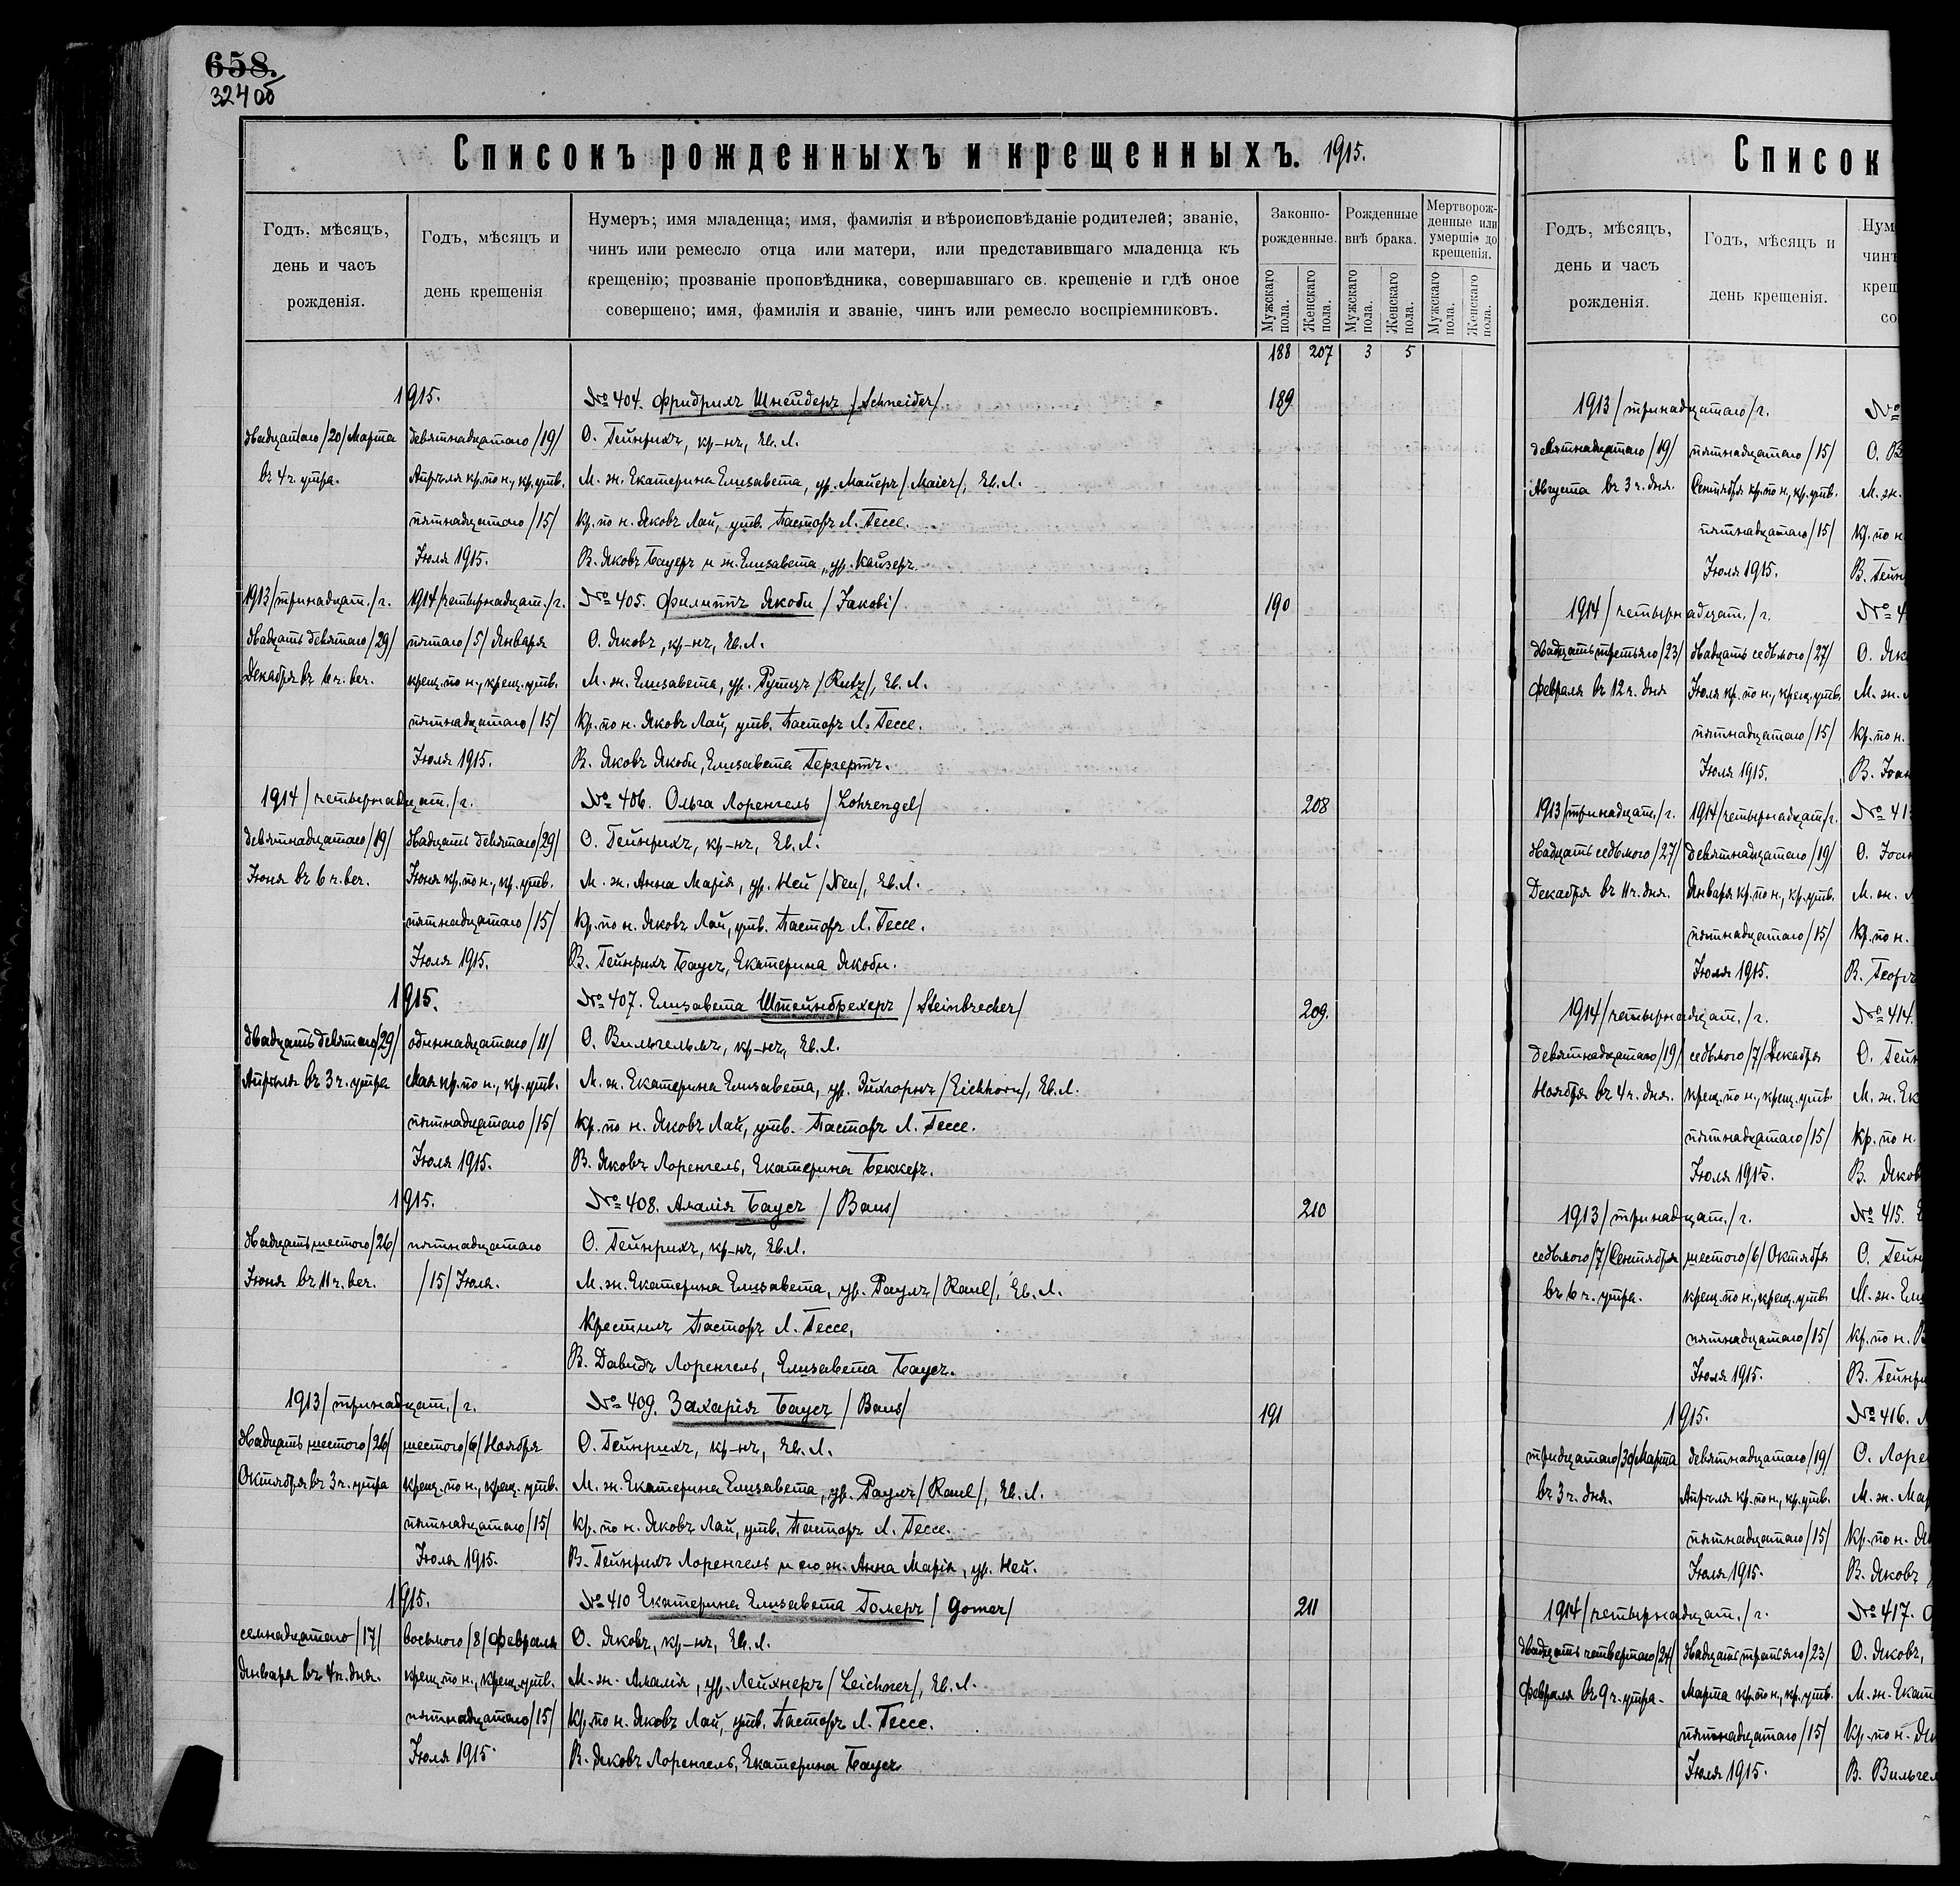 658.
324 об
Списокъ рожденныхъ и крещенныхъ. 1915.
Годъ, мѣсяцъ, день и часъ рожденія.
Годъ, мѣсяцъ и день крещенія
Нумеръ; имя младенца; имя, фамилія и вѣроисповѣданіе родителей; званіе,
чинъ или ремесло отца или матери, или представившаго младенца къ
крещенію; прозваніе проповѣдника, совершавшаго св. крещеніе и гдѣ оное
совершено; имя, фамилія и званіе, чинъ или ремесло воспріемниковъ.
Законно-рожденные.
Рожденные внѣ брака.
Мертворож-денные или умершіе до крещенія.
Мужскаго пола. Женскаго пола. Мужскаго пола. Женскаго пола. Мужскаго пола. Женскаго пола.
188 207 3 5
1915. №404. Фридрихъ Шнейдеръ /Schneider/ 189
двадцатаго /20/ Марта девятнадцатаго /19/ О. Гейнрихъ, кр-нъ, Ев. Л.
въ 4 ч. утра. Апрѣля кр. по н., кр. утв. М. ж. Екатерина Елизавета, ур. Майеръ /Maier/, Ев. Л.
пятнадцатаго /15/ Кр. по н. Яковъ Лай, утв. Пасторъ А. Гессе.
Іюля 1915. В. Яковъ Бауеръ и ж. Елизавета, ур. Кайзеръ.
1913 /тринадцат./ г. 1914 /четырнадцат./ г. №405. Филиппъ Якоби /Jakobi/ 190
двадцать девятаго /29/ пятаго /5/ Января О. Яковъ, кр-нъ, Ев. Л.
Декабря въ 6 ч. веч. крещ. по н., крещ. утв. М. ж. Елизавета, ур. Рутцъ /Rutz/, Ев. Л.
пятнадцатаго /15/ Кр. по н. Яковъ Лай, утв. Пасторъ А. Гессе.
Іюля 1915. В. Яковъ Якоби, Елизавета Гергертъ.
1914 /четырнадцат./ г. №406. Ольга Лоренгель /Lohrengel/ 208
девятнадцатаго /19/ двадцать девятаго /29/ О. Гейнрихъ, кр-нъ, Ев. Л.
Іюня въ 6 ч. веч. Іюня кр. по н., кр. утв. М. ж. Анна Марія, ур. Ней /Neu/, Ев. Л.
пятнадцатаго /15/ Кр. по н. Яковъ Лай, утв. Пасторъ А. Гессе.
Іюля 1915. В. Гейнрихъ Баусъ, Екатерина Якоби.
1915. №407. Елизавета Штейнбрехеръ /Steinbrecher/ 209.
двадцать девятаго /29/ одиннадцатаго /11/ О. Вильгельмъ, кр-нъ, Ев. Л.
Апрѣля въ 3 ч. утра Мая кр. по н., кр. утв. М. ж. Екатерина Елизавета, ур. Эйхгорнъ /Eichhorn/, Ев. Л.
пятнадцатаго /15/ Кр. по н. Яковъ Лай, утв. Пасторъ А. Гессе.
Іюля 1915. В. Яковъ Лоренгель, Екатерина Беккеръ.
1915. №408. Амалія Баусъ /Baus/ 210
двадцать шестого /26/ пятнадцатаго О. Гейнрихъ, кр-нъ, Ев. Л.
Іюня въ 11 ч. веч. /15/ Іюля. М. ж. Екатерина Елизавета, ур. Раулъ /Raul/, Ев. Л.
Крестилъ Пасторъ А. Гессе,
В. Давидъ Лоренгель, Елизавета Баусъ.
1913 /тринадцат./ г. №409. Захарія Баусъ /Baus/ 191
двадцать шестого /26/ шестого /6/ Ноября О. Гейнрихъ, кр-нъ, Ев. Л.
Октября въ 3 ч. утра крещ. по н., крещ. утв. М. ж. Екатерина Елизавета, ур. Раулъ /Raul/, Ев. Л.
пятнадцатаго /15/ Кр. по н. Яковъ Лай, утв. Пасторъ А. Гессе.
Іюля 1915. В. Гейнрихъ Лоренгель и его ж. Анна Марія, ур. Ней.
1915. №410 Екатерина Елизавета Гомеръ /Gomer/ 211
семнадцатаго /17/ восьмого /8/ Февраля О. Яковъ, кр-нъ, Ев. Л.
Января въ 4 ч. дня. крещ. по н., крещ. утв. М. ж. Амалія, ур. Лейхнеръ /Leichner/, Ев. Л.
пятнадцатаго /15/ Кр. по н. Яковъ Лай, утв. Пасторъ А. Гессе.
Іюля 1915. В. Яковъ Лоренгель, Екатерина Баусъ
Список
Годъ, мѣсяцъ, день и часъ рожденія.
Годъ, мѣсяцъ и день крещенія.
Нум
чинъ
крещ
со
1913 /тринадцатаго/ г. №
девятнадцатаго /19/ пятнадцатаго /15/ О. В
Августа въ 3 ч. дня. Сентября кр. по н., кр. утв. М. ж.
пятнадцатаго /15/ Кр. по н
Іюля 1915. В. Гейн
1914 /четырнадцат./ г. № 4
двадцать третьяго /23/ двадцать седьмого /27/ О. Як
Февраля въ 12 ч. дня Іюля кр. по н., крещ. утв. М. ж.
пятнадцатаго /15/ Кр. по н.
Іюля 1915. В. Іоан
1913 /тринадцат./ г. 1914 /четырнадцат/ г. № 41
двадцать седьмого /27/ девятнадцатаго /19/ О. Іоан
Декабря въ 11 ч. дня. Января кр. по н., кр. утв. М. ж.
пятнадцатаго /15/ Кр. по н.
Іюля 1915. В. Георг
1914 /четырнадцат./ г. №414.
девятнадцатаго /19/ седьмого /7/ Декабря О. Гейн
Ноября въ 4 ч. дня. крещ. по н., крещ. утв. М. ж. Ек
пятнадцатаго /15/ Кр. по н.
Іюля 1915. В. Яков
1913 /тринадцат./ г. №415. Е
седьмого /7/ Сентября шестого /6/ Октября О. Гейн
въ 6 ч. утра. крещ. по н., крещ. утв. М. ж. Ели
пятнадцатаго /15/ Кр. по н. В
Іюля 1915. В. Гейнри
1915. №416.
тридцатаго /30/ Марта девятнадцатаго /19/ О. Лоре
въ 3 ч. дня. Апрѣля кр. по н., кр. утв. М. ж. Мар
пятнадцатаго /15/ Кр. по н. Як
Іюля 1915. В. Яковъ
1914 /четырнадцат./ г. №417.
двадцать четвертаго /24/ двадцать третьяго /23/ О. Яковъ,
Февраля въ 9 ч. утра. Марта кр. по н., кр. утв. М. ж. Екат
пятнадцатаго /15/ Кр. по н. Як
Іюля 1915. В. Вильгел